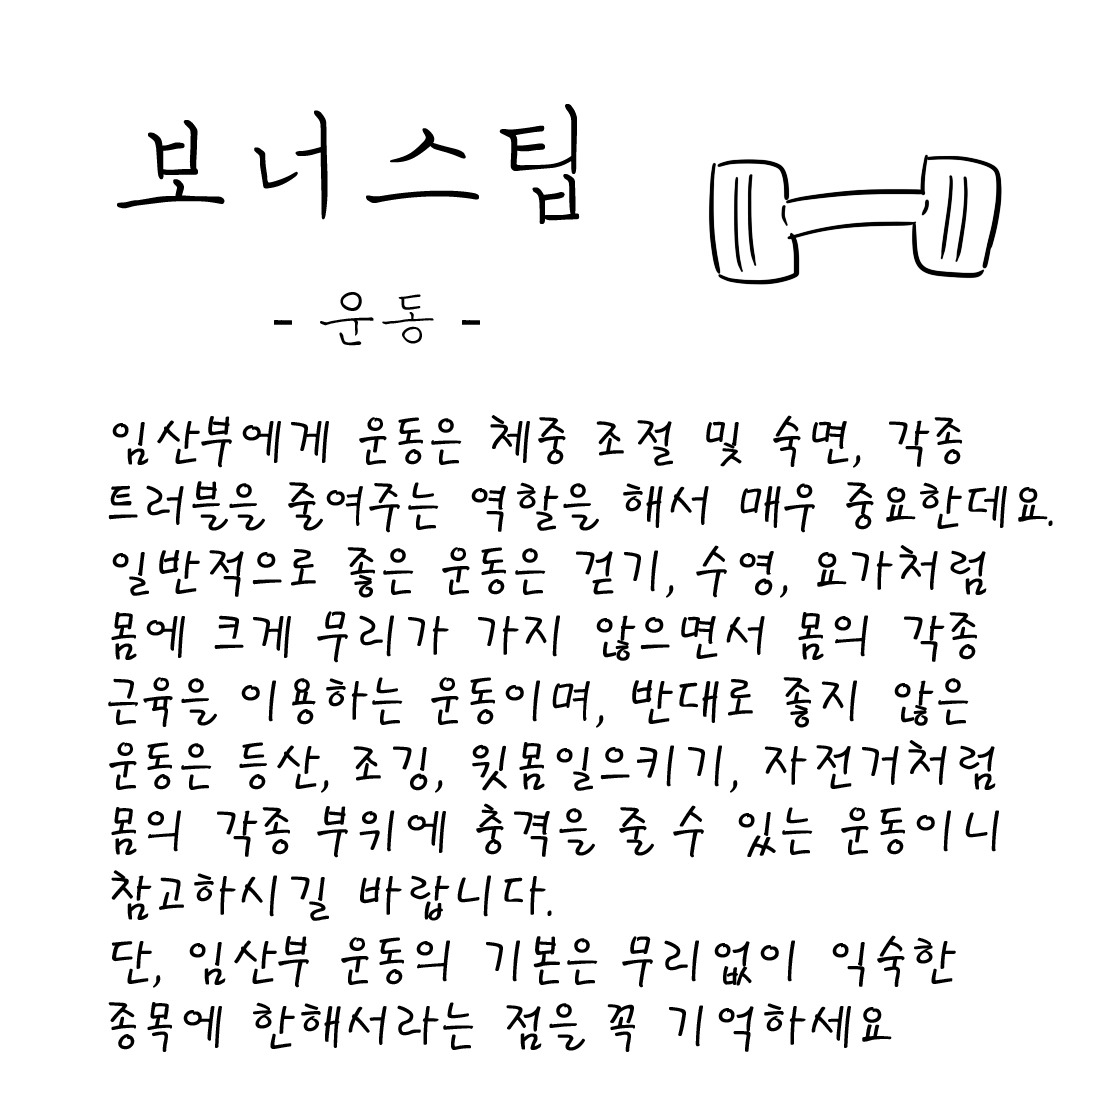 보너스팁
- 운동 -
임산부에게 운동은 체중 조절 및 숙면, 각종
트러블을 줄여주는 역할을 해서 매우 중요한데요.
일반적으로 좋은 운동은 걷기, 수영, 요가처럼
몸에 크게 무리가 가지 않으면서 몸의 각종
근육을 이용하는 운동이며, 반대로 좋지 않은
운동은 등산, 조깅, 윗몸일으키기, 자전거처럼
몸의 각종 부위에 충격을 줄 수 있는 운동이니
참고하시길 바랍니다.
단, 임산부 운동의 기본은 무리없이 익숙한
종목에 한해서라는 점을 꼭 기억하세요